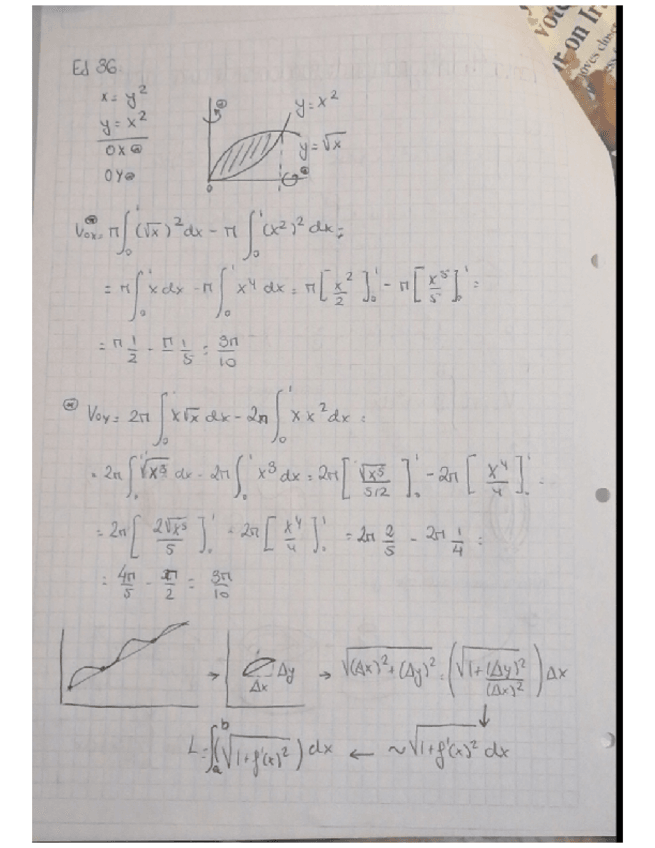 Es 36
x = y²
y = x²
OX ⓐ
OY ⓐ
y = x²
y = √x
0
Vox = π∫₀¹(√x)² dx - π∫₀¹(x²)² dx =
= π∫₀¹ x dx - π∫₀¹ x⁴ dx = π[x²/2]₀¹ - π[x⁵/5]₀¹ =
= π 1/2 - π 1/5 = 3π/10
Voy = 2π∫₀¹ x√x dx - 2π∫₀¹ x x² dx =
= 2π∫₀¹ √x³ dx - 2π∫₀¹ x³ dx = 2π[√x⁵/5/2]₀¹ - 2π[x⁴/4]₀¹ =
= 2π[2√x⁵/5]₀¹ - 2π[x⁴/4]₀¹ = 2π 2/5 - 2π 1/4 =
= 4π/5 - π/2 = 3π/10
→ Δy Δx → √(Δx)²+(Δy)² = (√1+(Δy)²/(Δx)²) Δx
↓
L = ∫ₐᵇ(√1+f'(x)²) dx ← ~√1+f'(x)² dx